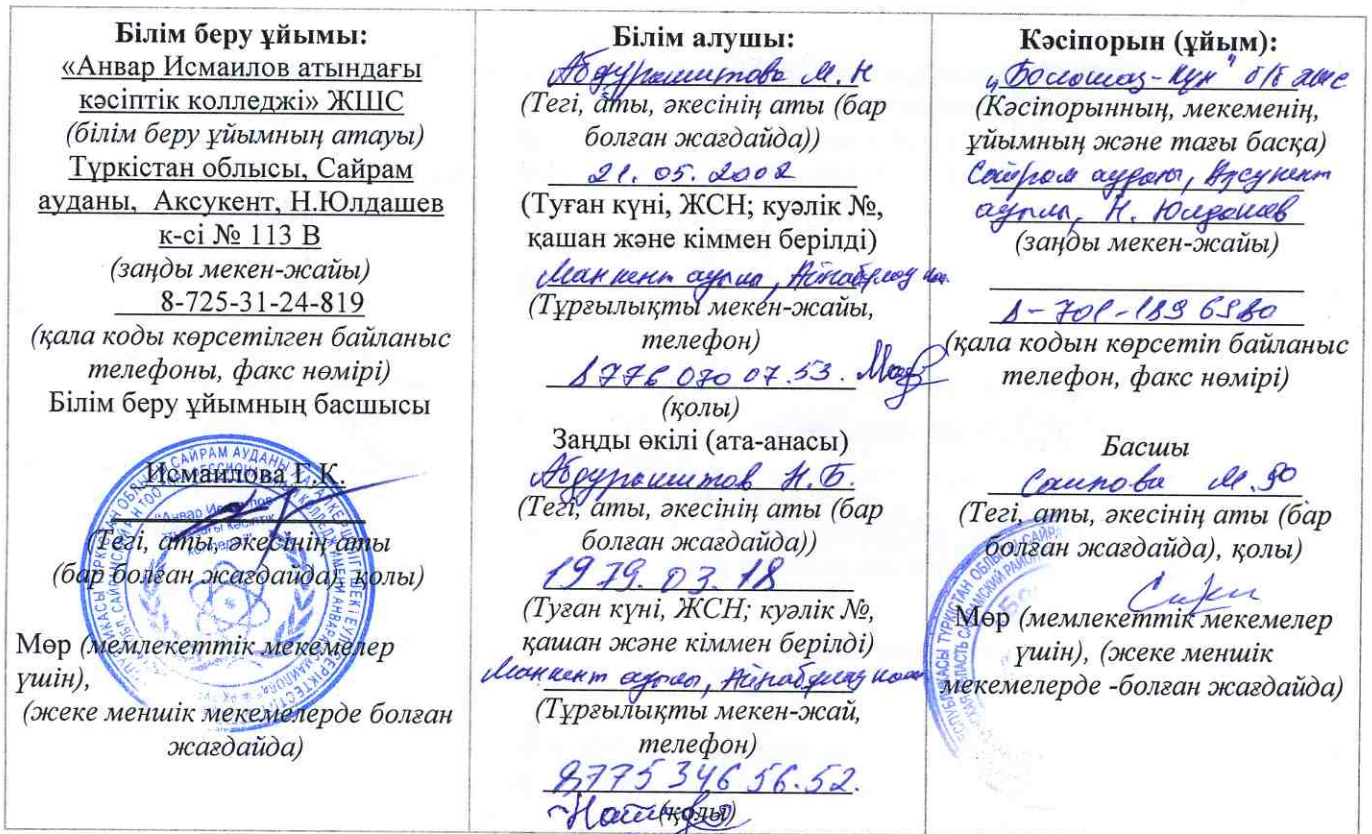 Білім беру ұйымы:
«Анвар Исмаилов атындағы
кәсіптік колледжі» ЖШС
(білім беру ұйымның атауы)
Түркістан облысы, Сайрам
ауданы, Аксукент, Н.Юлдашев
к-сі № 113 В
(заңды мекен-жайы)
8-725-31-24-819
(қала коды көрсетілген байланыс
телефоны, факс нөмірі)
Білім беру ұйымның басшысы
Исмаилова Г.К.
(Тегі, аты, әкесінің аты
(бар болған жағдайда), қолы)
Мөр (мемлекеттік мекемелер
үшін),
(жеке меншік мекемелерде болған
жағдайда)
Білім алушы:
Абдурашитова М. Н
(Тегі, аты, әкесінің аты (бар
болған жағдайда))
21. 05. 2002
(Туған күні, ЖСН; куәлік №,
қашан және кіммен берілді)
Манкент ауылы, Айнабұлақ
(Тұрғылықты мекен-жайы,
телефон)
8776 070 07.53.
(қолы)
Заңды өкілі (ата-анасы)
Абдурашитов Н. Б.
(Тегі, аты, әкесінің аты (бар
болған жағдайда))
1979. 03. 18
(Туған күні, ЖСН; куәлік №,
қашан және кіммен берілді)
Манкент ауылы, Айнабұлақ
(Тұрғылықты мекен-жай,
телефон)
8775 346 56.52.
(қолы)
Кәсіпорын (ұйым):
"Болашақ-Күн" б/б ЖШС
(Кәсіпорынның, мекеменің,
ұйымның және тағы басқа)
Сайрам ауданы, Ақсукент
ауылы, Н. Юлдашев
(заңды мекен-жайы)
8-701-189 6980
(қала кодын көрсетіп байланыс
телефон, факс нөмірі)
Басшы
Саипова М.
(Тегі, аты, әкесінің аты (бар
болған жағдайда), қолы)
Мөр (мемлекеттік мекемелер
үшін), (жеке меншік
мекемелерде -болған жағдайда)